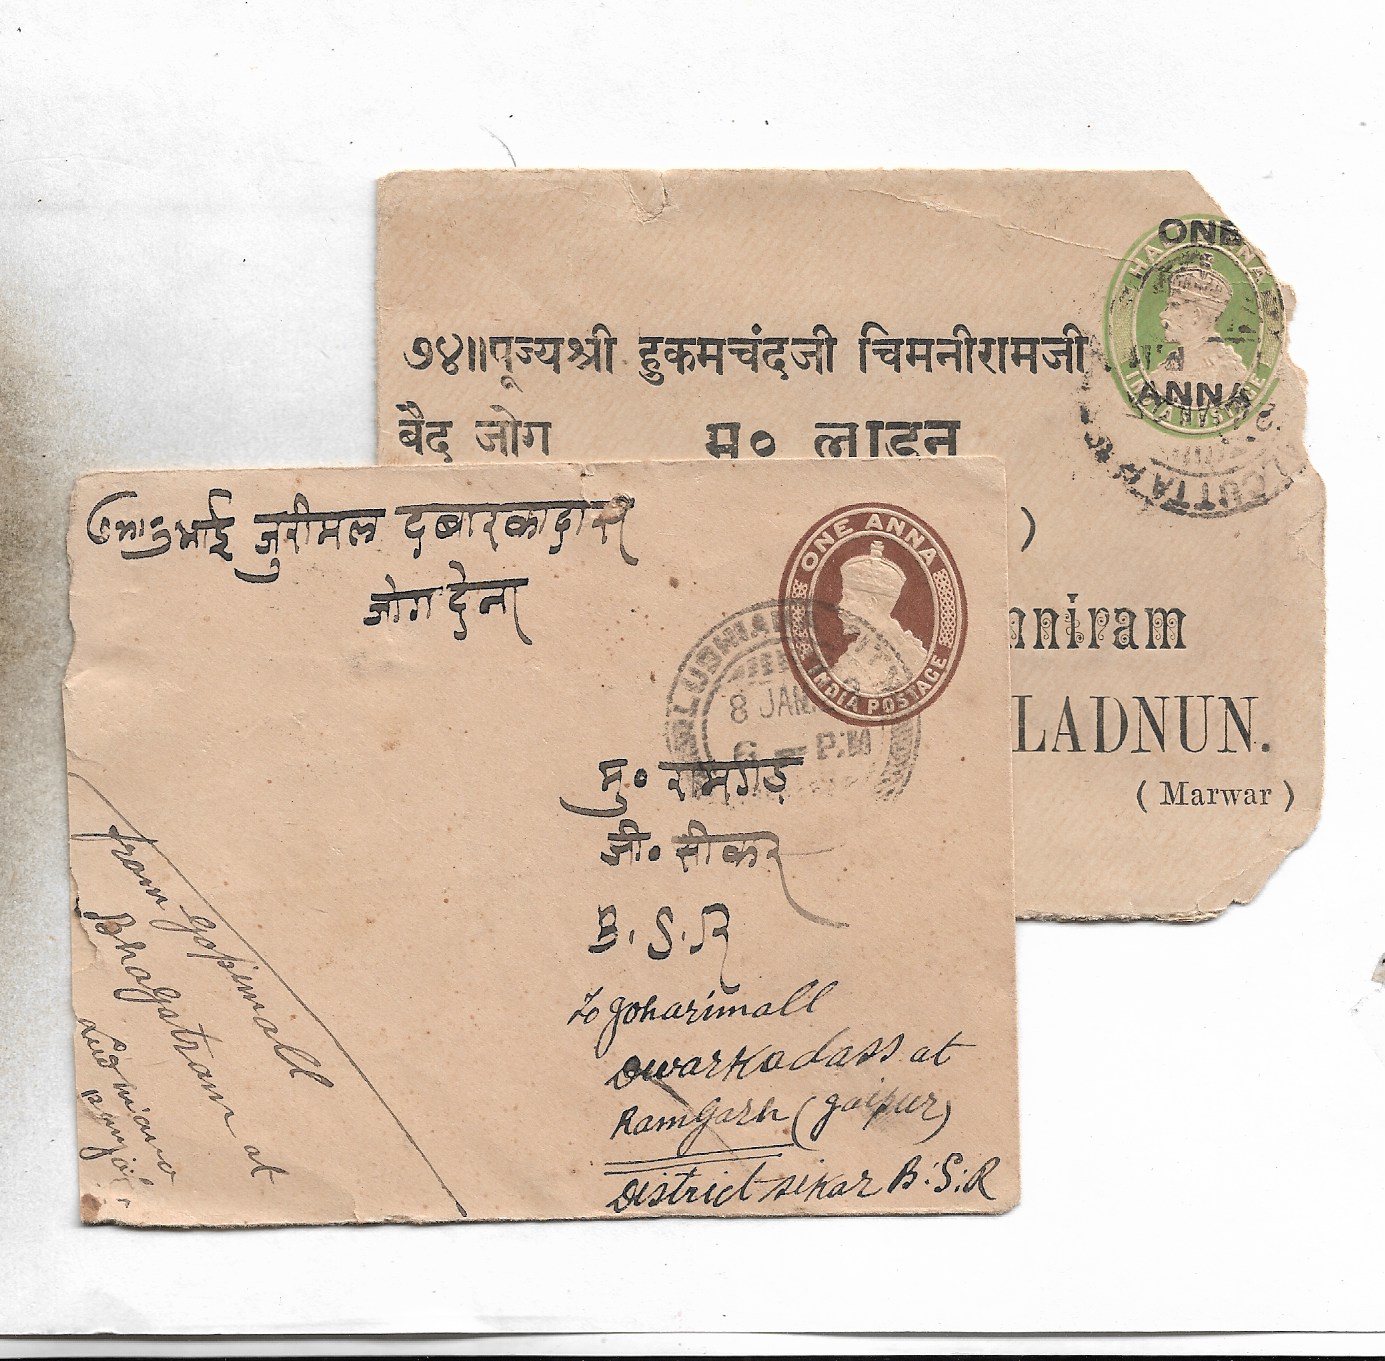 ONE
HALF ANNA
ANNA
INDIA POSTAGE
CALCUTTA
७४॥पूज्यश्री हुकमचंदजी चिमनीरामजी
बैद जोग मु० लाडनू
)
nniram
LADNUN.
( Marwar )
ONE ANNA
INDIA POSTAGE
LUDHIANA CITY
8 JAN.
6 - P.M
भाई जुरीमल दबारकादास
जोग देना
मु० रामगड
जी० सीकर
B. S. R
To Joharimall
Dwarkadass at
Ramgarh (Jaipur)
District sikar B.S.R
from Gopimall
Bhagatram at